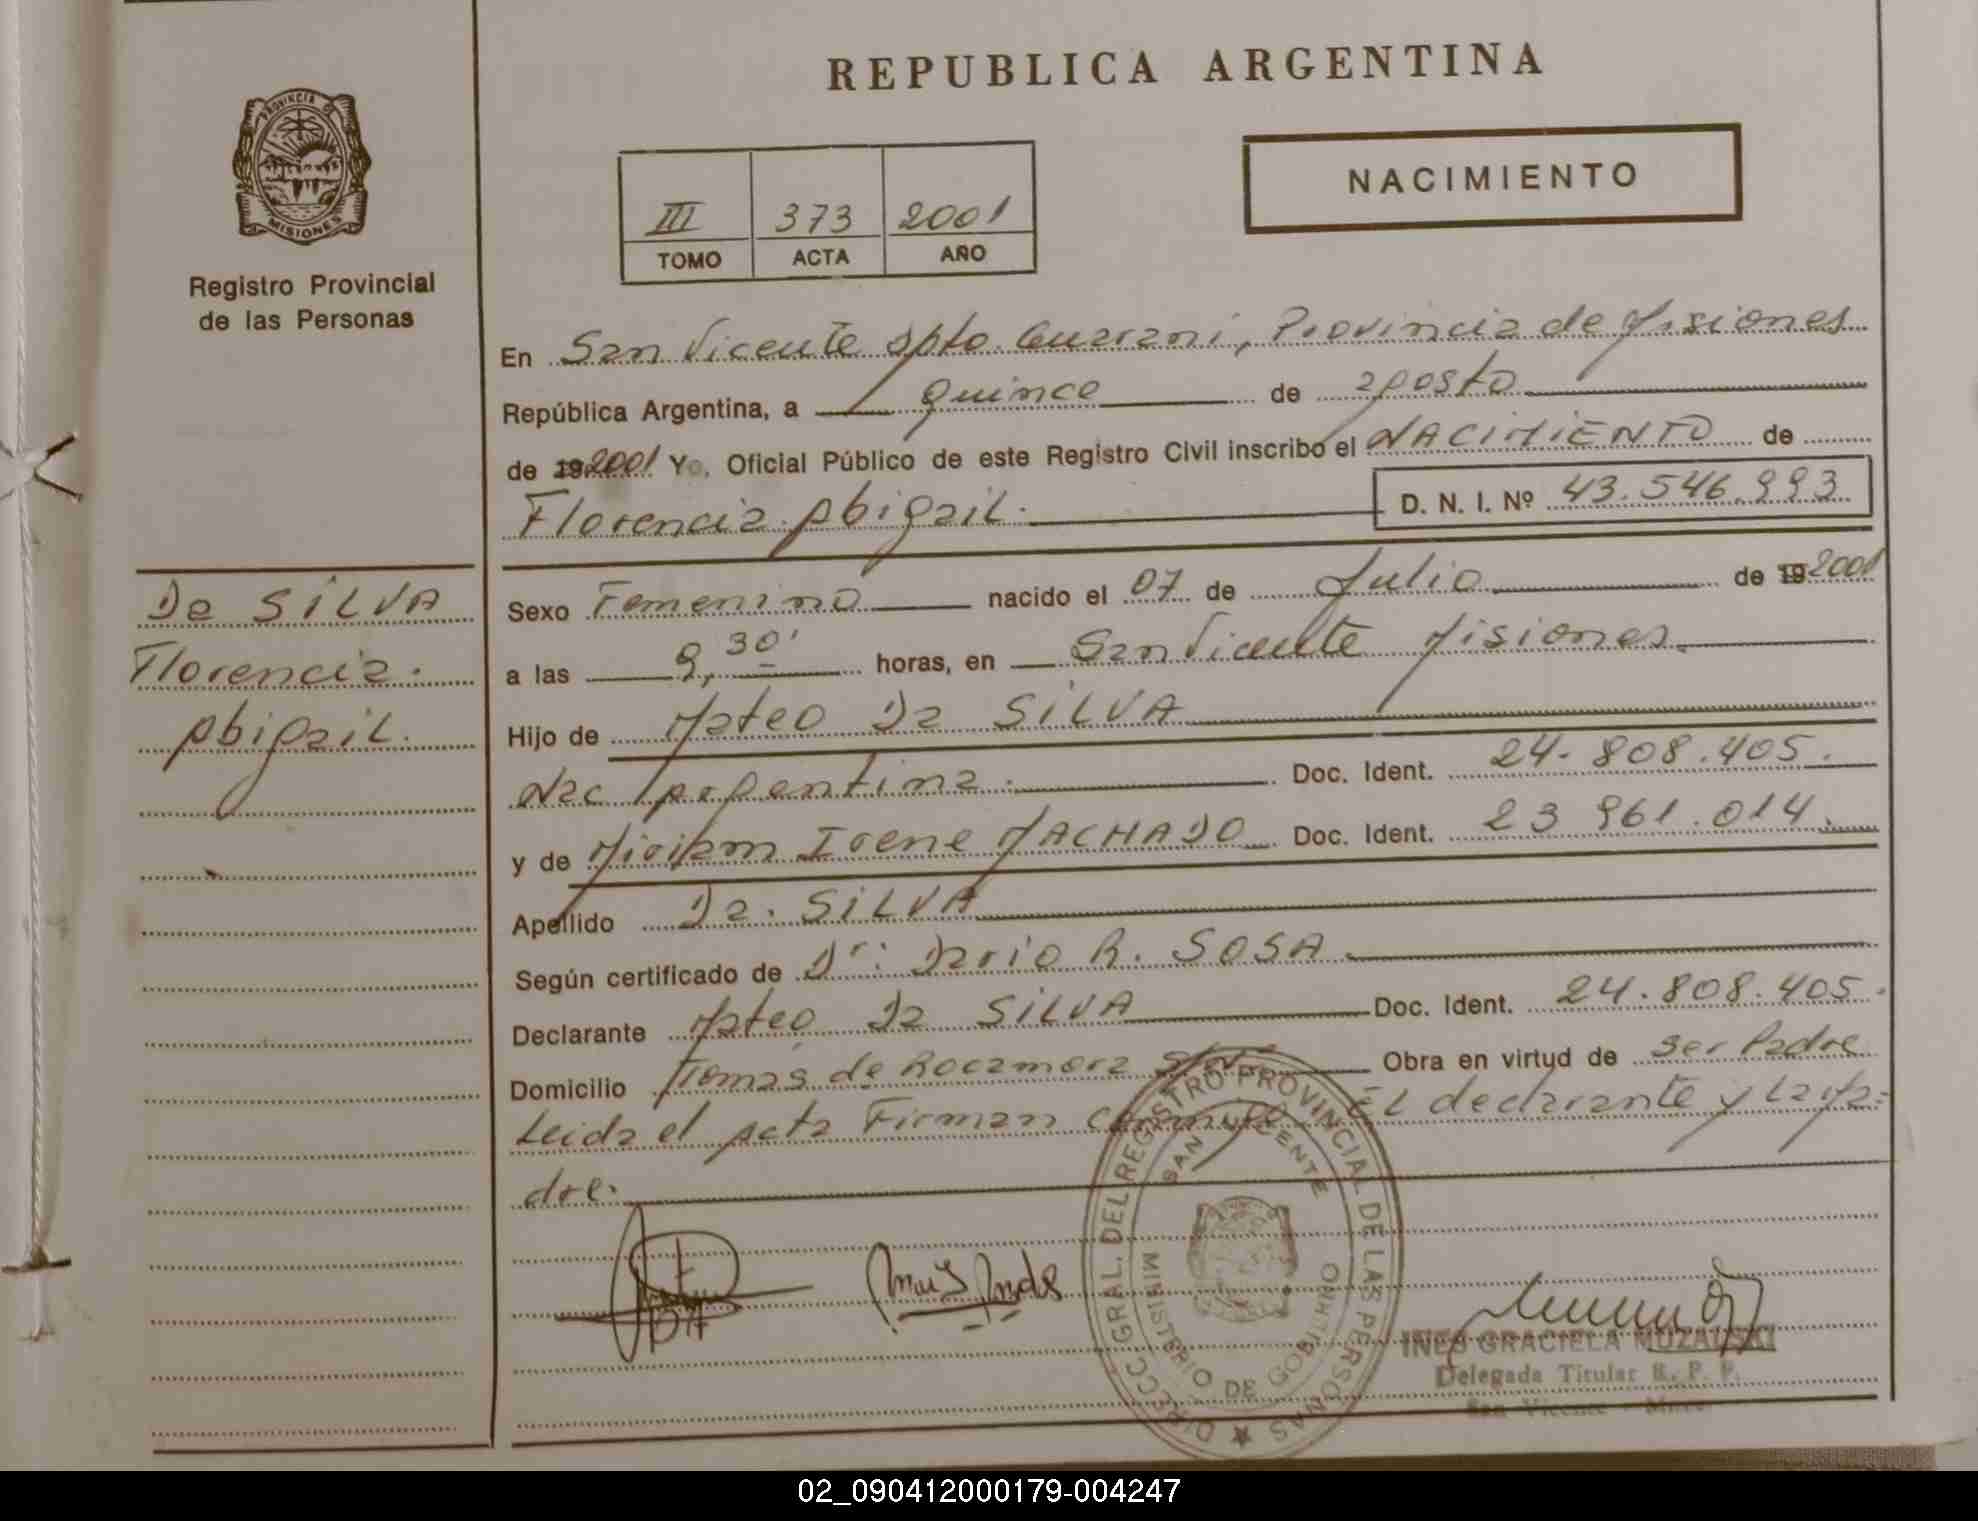 REPUBLICA ARGENTINA
PROVINCIA DE
MISIONES
Registro Provincial
de las Personas
NACIMIENTO
III 373 2001
TOMO ACTA AÑO
En San Vicente Dpto. Guarani, Provincia de Misiones
República Argentina, a quince de agosto
de 19 2001 Yo, Oficial Público de este Registro Civil inscribo el NACIMIENTO de
Florencia Abigail. D. N. I. Nº 43.546.993
Da SILVA
Florencia.
Abigail.
Sexo Femenino nacido el 07 de Julio de 19 2001
a las 9,30' horas, en San Vicente Misiones.
Hijo de Mateo Da SILVA
Nac Argentina. Doc. Ident. 24.808.405.
y de Miriam Irene MACHADO Doc. Ident. 23 961.014.
Apellido Da. SILVA
Según certificado de Dr: Dario R. SOSA
Declarante Mateo Da SILVA Doc. Ident. 24.808.405.
Domicilio Tomás de Rocamora S/Nº Obra en virtud de ser Padre
Leida el acta Firman conmigo El declarante y La Ma=
dre.
DIRECC. GRAL. DEL REGISTRO PROVINCIAL DE LAS PERSONAS
SAN VICENTE
MINISTERIO DE GOBIERNO
INES GRACIELA MUZALSKI
Delegada Titular R. P. P.
San Vicente - Mnes.
02_090412000179-004247